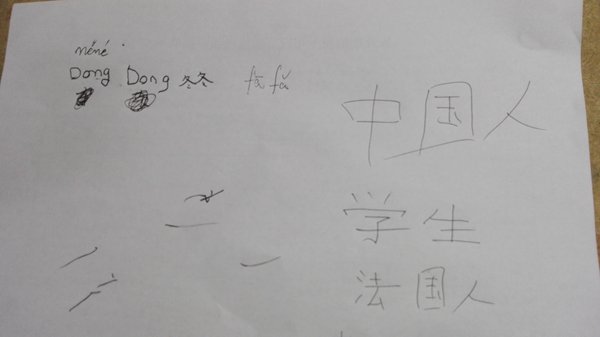 néné
Dong Dong 冬冬 fā fǎ
中国人
学生
法国人